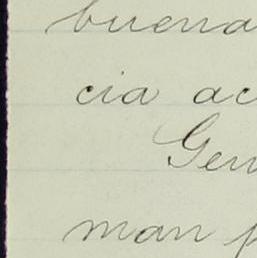 buena
cia ac
Gen
man p